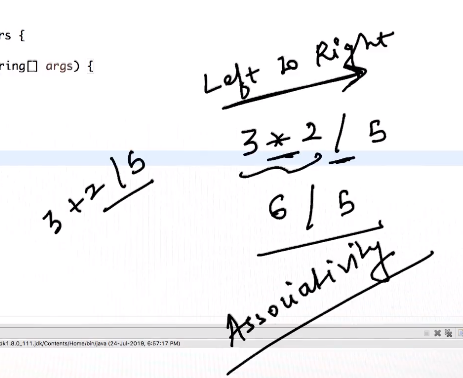 rs {
ring[] args) {
Left to Right
3 * 2 / 5
3 + 2 / 5
6 / 5
Associativity
dk1.8.0_111.jdk/Contents/Home/bin/java (24-Jul-2019, 6:57:17 PM)